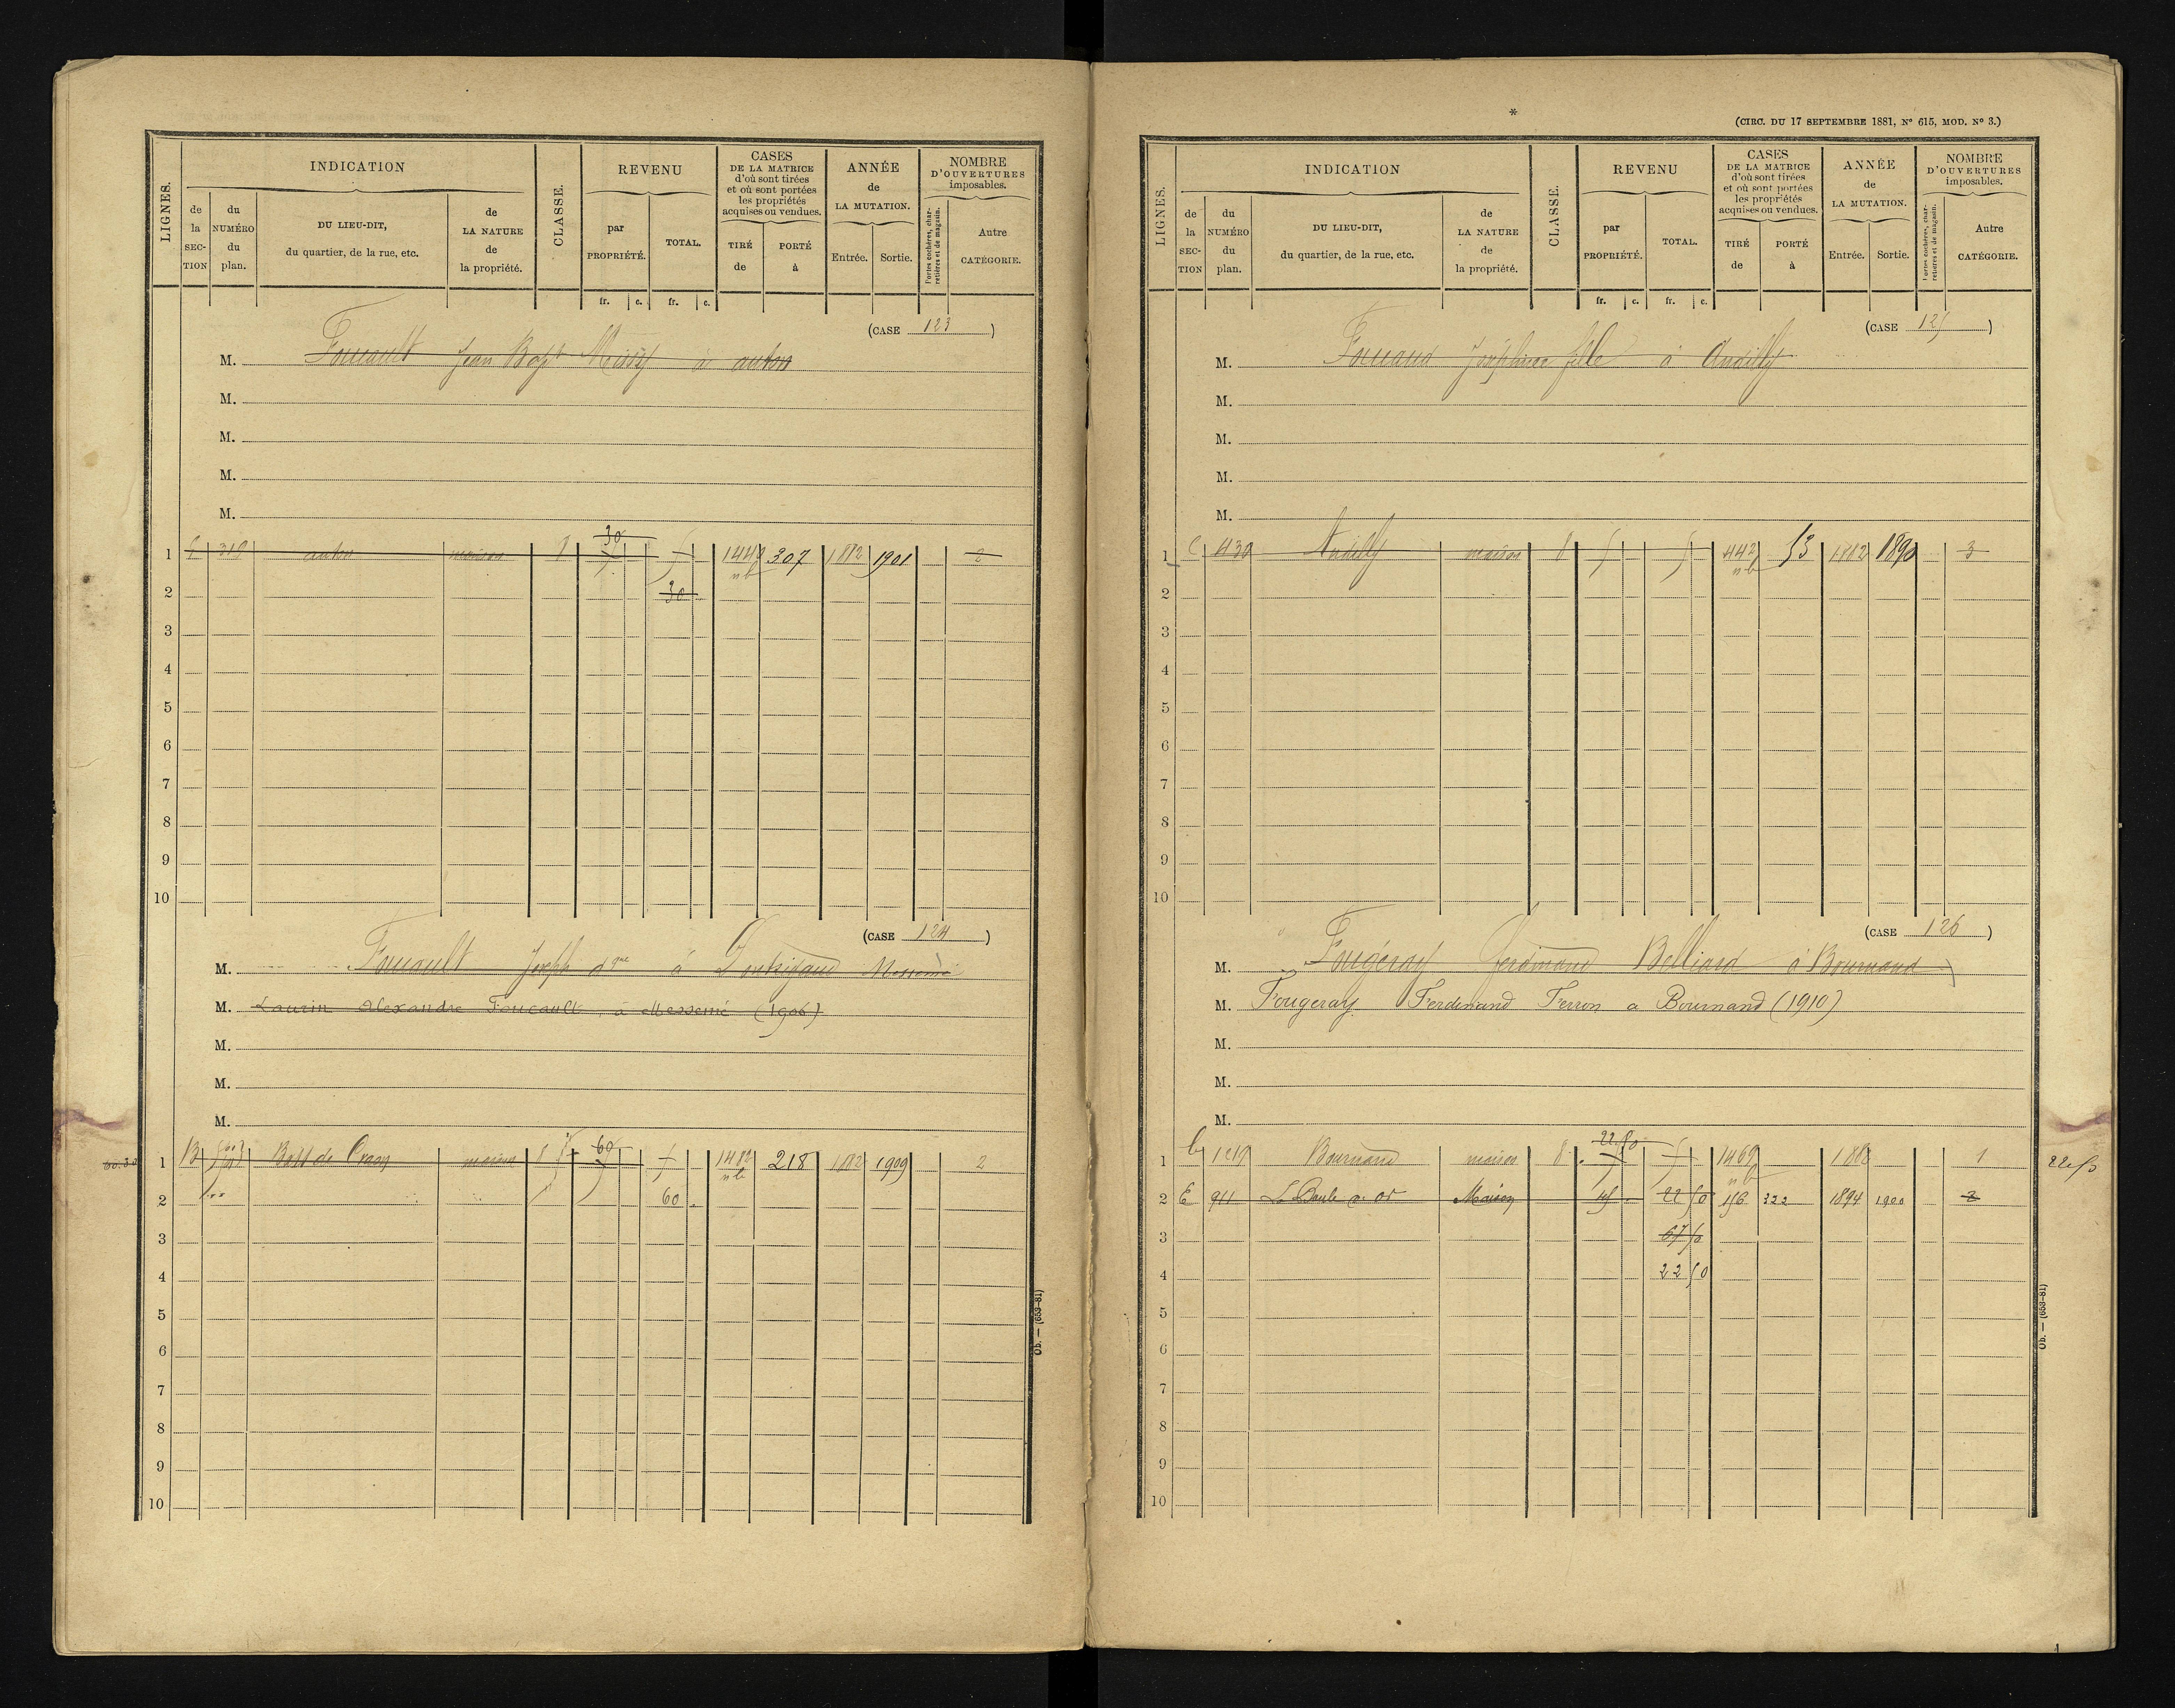 LIGNES.
INDICATION
de la SEC-TION
du NUMÉRO du plan.
DU LIEU-DIT, du quartier, de la rue, etc.
de LA NATURE de la propriété.
CLASSE.
REVENU
par PROPRIÉTÉ.
TOTAL.
CASES DE LA MATRICE d'où sont tirées et où sont portées les propriétés acquises ou vendues.
TIRÉ de
PORTÉ à
ANNÉE de LA MUTATION.
Entrée.
Sortie.
NOMBRE D'OUVERTURES imposables.
Portes cochères, charretières et de magasin.
Autre CATÉGORIE.
fr. c. fr. c.
(CASE 123)
M. Foucault Jean Bapt à anton
M.
M.
M.
M.
30
1 319 anton maison 8 5 5 1440 307 1882 1901 2
nb
2 30
3
4
5
6
7
8
9
10
(CASE 124)
M. Foucault Joseph à Messemé
M. Laurin Alexandre Foucault, à Messemé (1906)
M.
M.
M.
60
60.30 1 B maison 8 1482 218 1882 1909 2
nb
2 60
3
4
5
6
7
8
9
10
Ob. — (653-81)
*
(CIRC. DU 17 SEPTEMBRE 1881, Nº 615, MOD. Nº 3.)
LIGNES.
INDICATION
de la SEC-TION
du NUMÉRO du plan.
DU LIEU-DIT, du quartier, de la rue, etc.
de LA NATURE de la propriété.
CLASSE.
REVENU
par PROPRIÉTÉ.
TOTAL.
CASES DE LA MATRICE d'où sont tirées et où sont portées les propriétés acquises ou vendues.
TIRÉ de
PORTÉ à
ANNÉE de LA MUTATION.
Entrée.
Sortie.
NOMBRE D'OUVERTURES imposables.
Portes cochères, charretières et de magasin.
Autre CATÉGORIE.
fr. c. fr. c.
(CASE 125)
M. Fouaud Joséphine fille à Andilly
M.
M.
M.
M.
1 C 430 Andilly maison 8 5 5 442 53 1882 1890 3
nb
2
3
4
5
6
7
8
9
10
(CASE 126)
M. Fougeray Ferdinand Belliard à Bournand
M. Fougeray Ferdinand Ferron a Bournand (1910)
M.
M.
M.
22.50
1 C 1219 Bournand maison 8 5 5 1469 1882 1 22.50
nb
2 E 911 Maison 45 22 50 156 322 1894 1900 2
3 67 50
4 22 50
5
6
7
8
9
10
Ob. — (653-81)